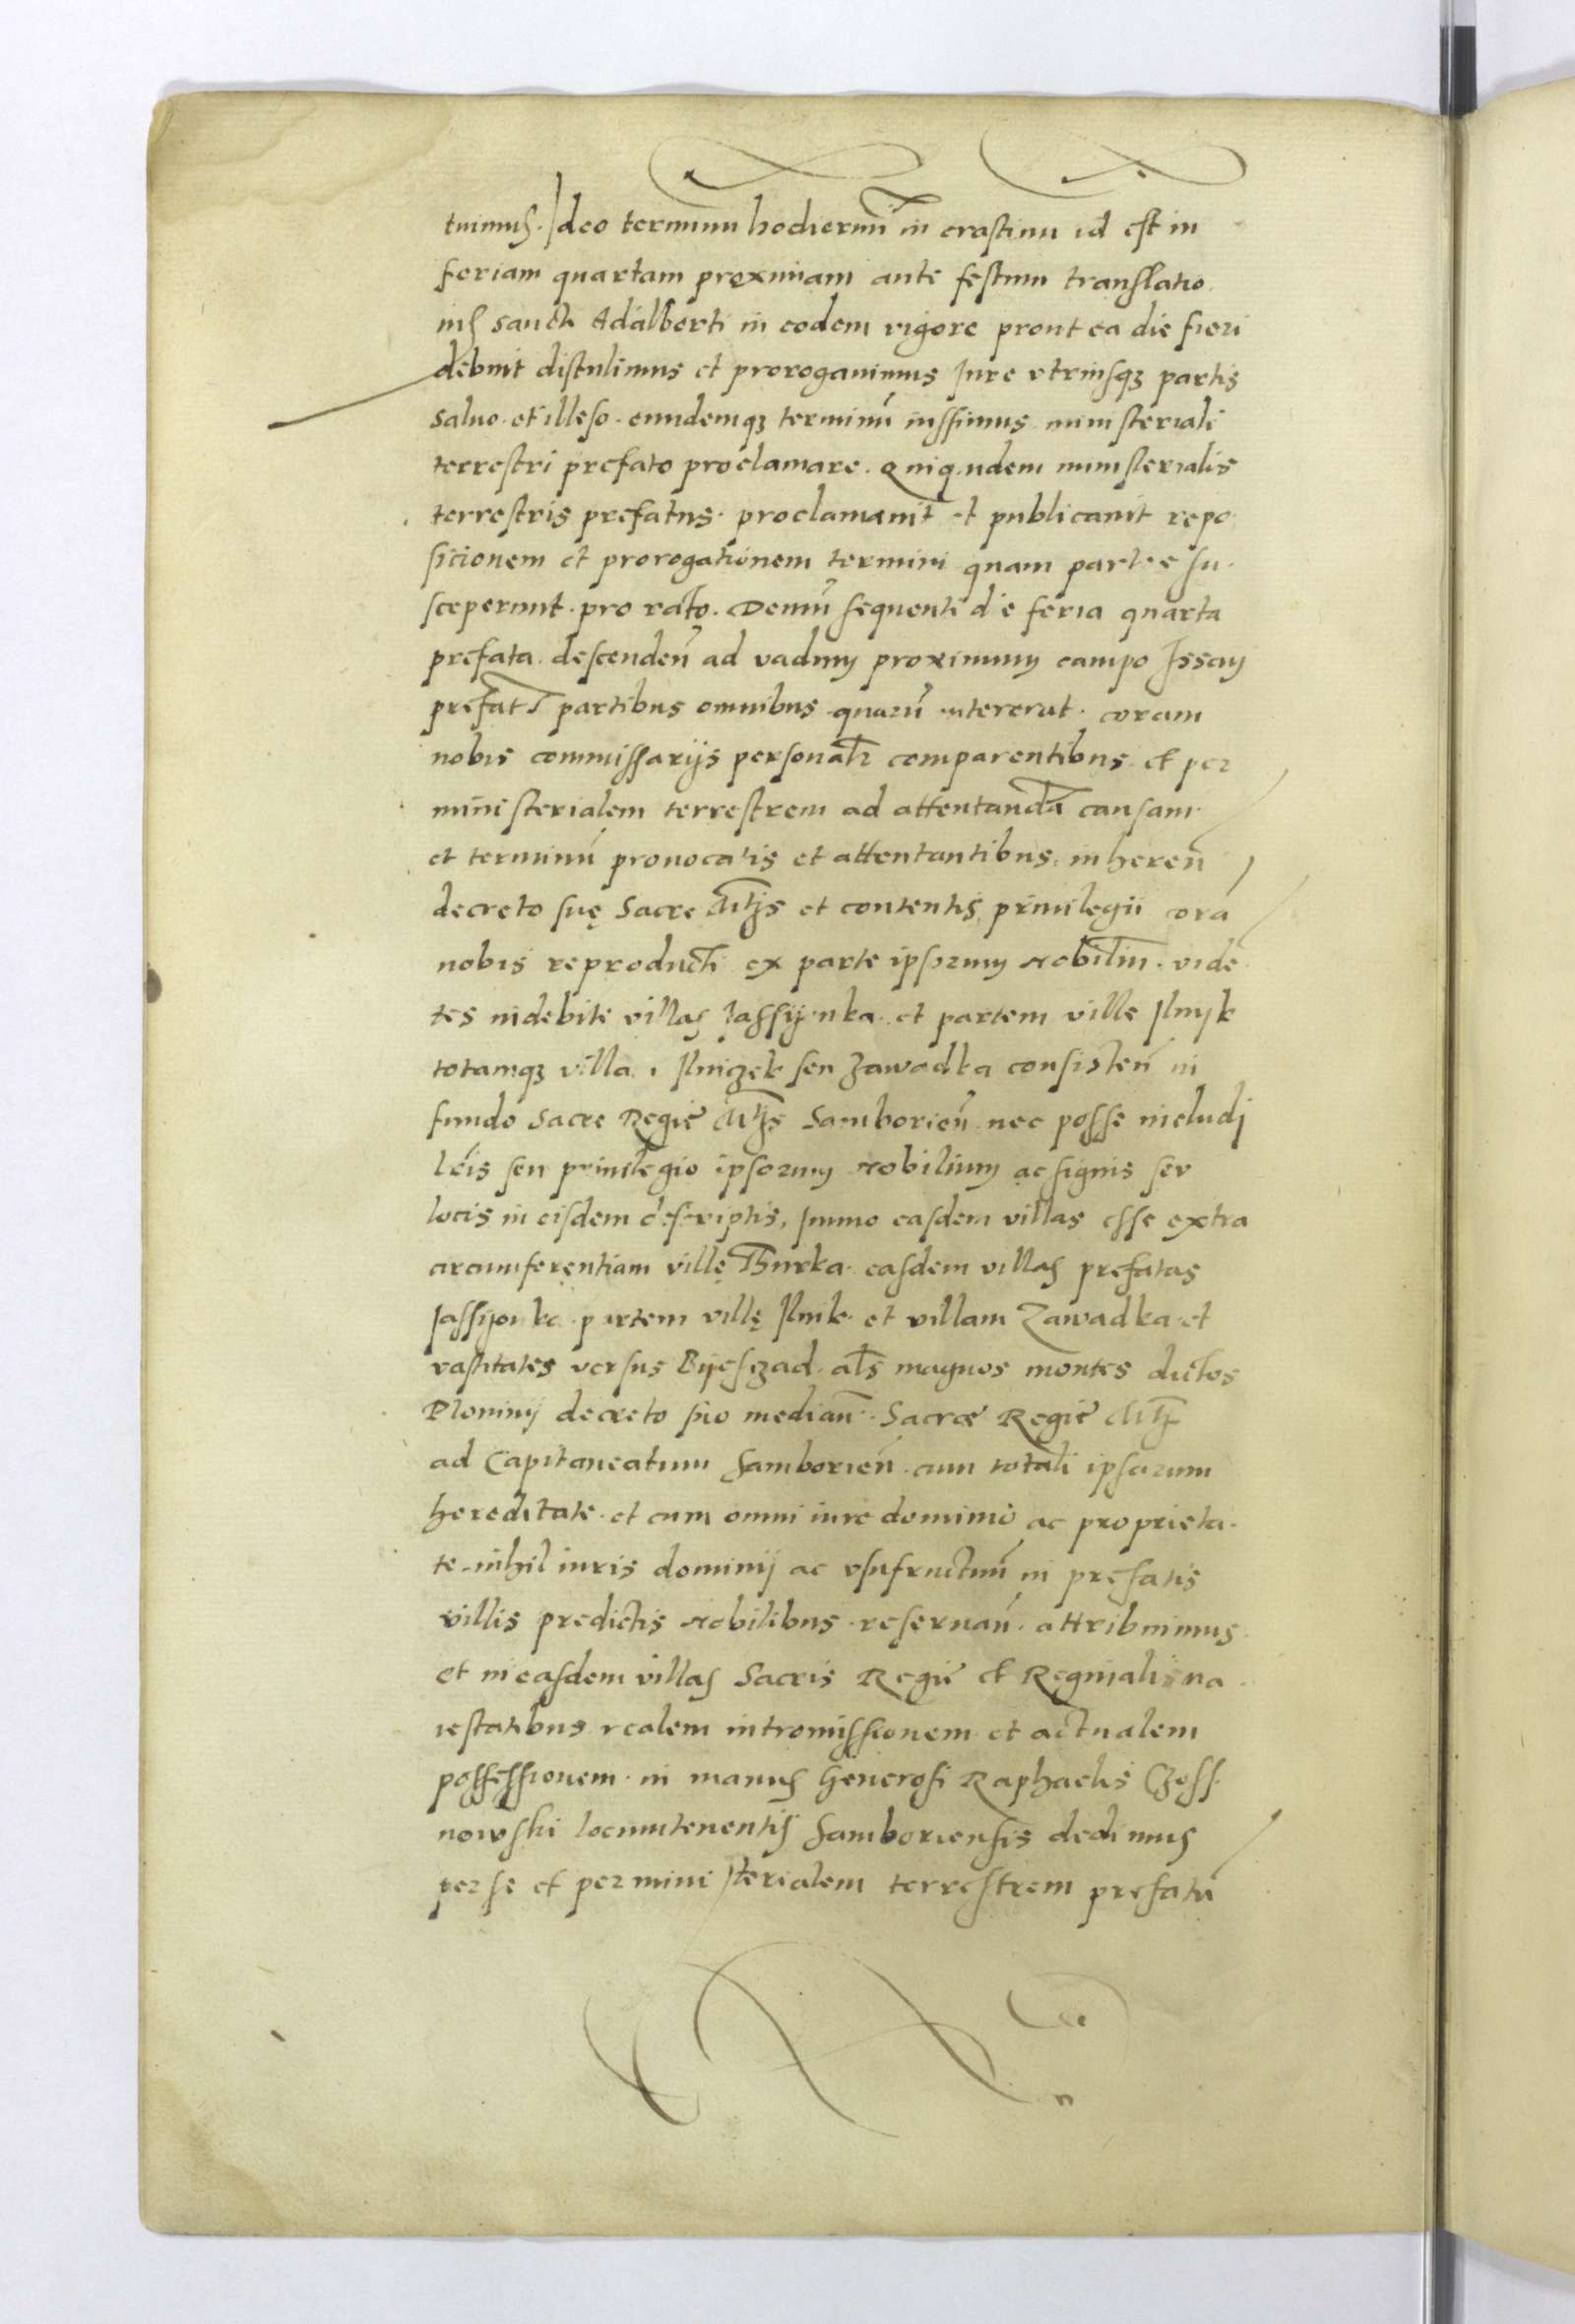 tuimus. Ideo terminum hodiernũ in crastinu id est in
feriam quartam proximam ante festum translatio
nis sancti Adalberti in eodem vigore prout ea die fieri
debuit distulimus et prorogauimus Iure vtriusqz partis
saluo et illeso. eundemqz terminũ iussimus ministeriali
terrestri prefato proclamare. Quiquidem ministerialis
terrestris prefatus. proclamauit et publicauit repo
sicionem et prorogationem termini quam partes su-
sceperunt. pro rato. Demũ sequenti die feria quarta
prefata. descendeñ ad vadum proximum campo Issay
prefat partibus omnibus quarũ intererat. coram
nobis commissarijs personalr comparentibus et per
ministerialem terrestrem ad attentandã causam
et terminũ prouocatis et attentantibus. inhereñ
decreto suę Sacre Mtis et contentis priuilegii corã
nobis reproducti ex parte ipsorum nobilium. vidẽ
tes indebite villas Iassijenka. et partem ville Ilnijk
totamqz villã Ilniczek seu Zawadka consisteñ in
fundo Sacre Regie Mtis Samborieñ nec posse includi
lr̃is seu priuilegio ipsorum nobilium ac signis seu
locis in eisdem descriptis, Immo easdem villas esse extra
circumferentiam villę Thurka. easdem villas prefatas
Iassijonka partem villę Ilnik. et villam Zawadka et
vastitates versus Bijeszad. als magnos montes dictos
Ploninij decreto suo mediañ. Sacræ Regie Mti
ad Capitaneatum Samborieñ. cum totali ipsarum
hereditate. et cum omni iure dominio ac proprieta-
te. nihil iuris dominij ac vsufructuũ in prefatis
villis predictis nobilibus reseruañ. attribuimus.
et in easdem villas Sacris Regie et Reginalis ma
iestatibus realem intromissionem et actualem
possessionem. in manus Generosi Raphaelis Czoss-
nowski locumtenentis Samboriensis dedimus
per se et per ministerialem terrestrem prefatũ